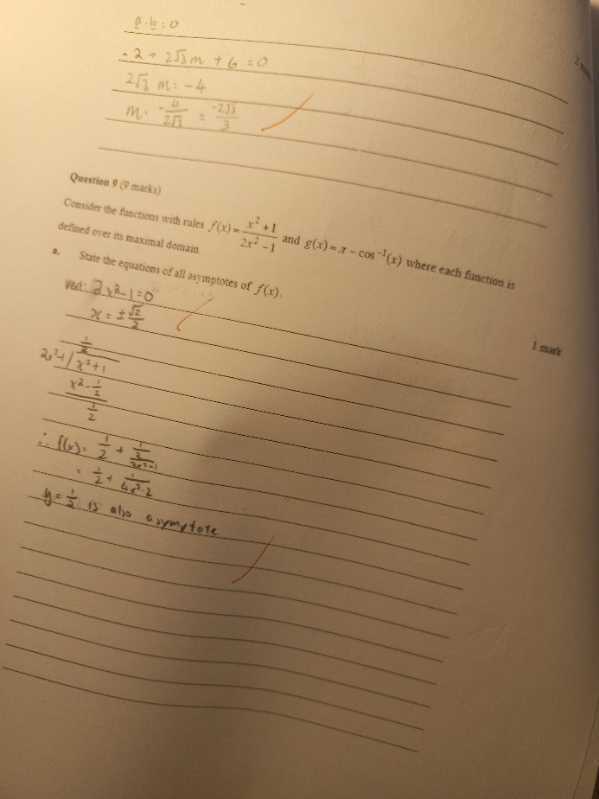 a.b = 0
-2 + 2√3 m + 6 = 0
2√3 m = -4
m = -4/2√3 = -2√3/3
Question 9 (9 marks)
Consider the functions with rules f(x) = (x² + 1)/(2x² - 1) and g(x) = x - cos⁻¹(x) where each function is
defined over its maximal domain.
a. State the equations of all asymptotes of f(x).
1 mark
2x² - 1 = 0
x = ± √2/2
1/2
2x²-1 / x² + 1
x² - 1/2
∴ f(x) = 1/2 +
= 1/2 + /4x²-2
y = 1/2 is also asymptote